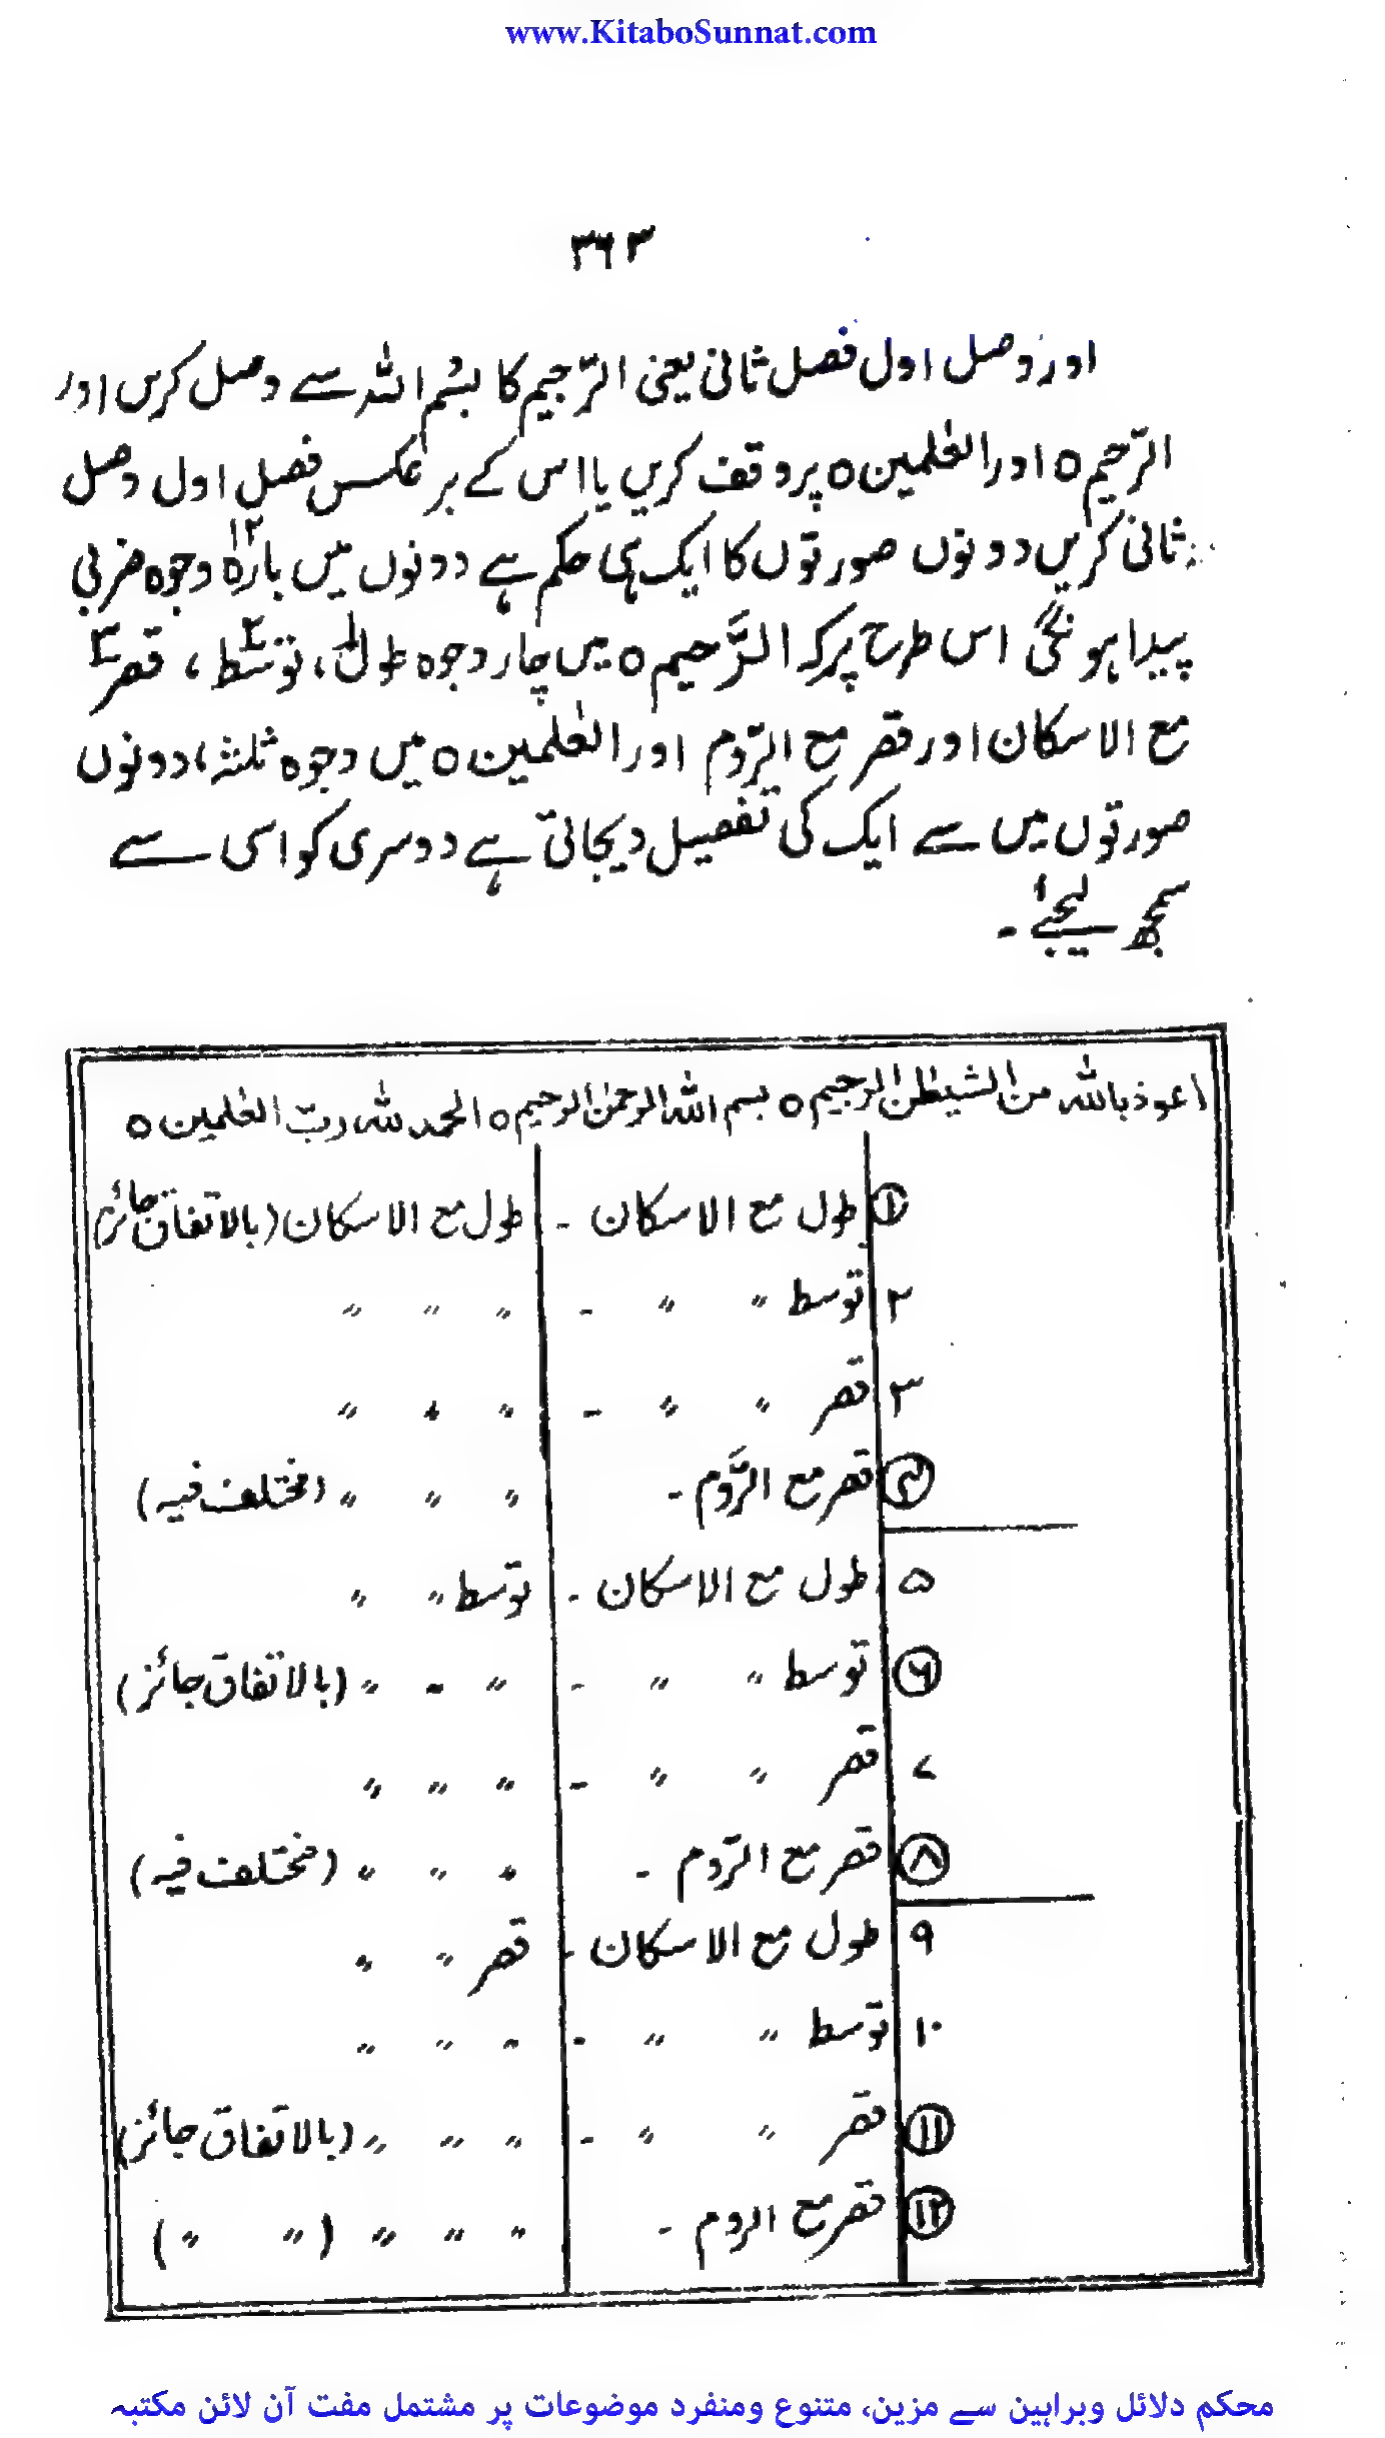 www.KitaboSunnat.com
۳۶۳
اور وصل اول فصل ثانی یعنی الرّجیم کا بسْم اللّٰہ سے وصل کریں اور
الرّحیم ٥ اور العٰلمین ٥ پر وقف کریں یا اس کے بر عکس فصل اول وصل
ثانی کریں دونوں صورتوں کا ایک ہی حکم ہے دونوں میں بارہ ۱۲ وجوہ ضربی
پیدا ہونگی اس طرح پر کہ الرَّحیم ٥ میں چار وجوہ طول ۱، توسط ۲، قصر ۳
مع الاسکان اور قصر مع الرّوم اور العٰلمین ٥ میں وجوہ ثلٰثہ، دونوں
صورتوں میں سے ایک کی تفصیل دیجاتی ہے دوسری کو اسی سے
سمجھ لیجئے ۔
اعوذ باللّٰہ من الشیطٰن الرجیم ٥ بسم اللّٰہ الرحمٰن الرحیم ٥ الحمد للّٰہ ربّ العٰلمین ٥
① طول مع الاسکان - طول مع الاسکان (بالاتفاق جائز)
۲ توسط ″ ″ - ″ ″ ″
۳ قصر ″ ″ - ″ ″ ″
④ قصر مع الرَّوم - ″ ″ ″ (مختلف فیہ)
۵ طول مع الاسکان - توسط ″ ″
⑥ توسط ″ ″ - ″ ″ ″ (بالاتفاق جائز)
۷ قصر ″ ″ - ″ ″ ″
⑧ قصر مع الرّوم - ″ ″ ″ (مختلف فیہ)
۹ طول مع الاسکان - قصر ″ ″
۱۰ توسط ″ ″ - ″ ″ ″
⑪ قصر ″ ″ - ″ ″ ″ (بالاتفاق جائز)
⑫ قصر مع الروم - ″ ″ ″ (″ ″)
محکم دلائل وبراہین سے مزین، متنوع ومنفرد موضوعات پر مشتمل مفت آن لائن مکتبہ